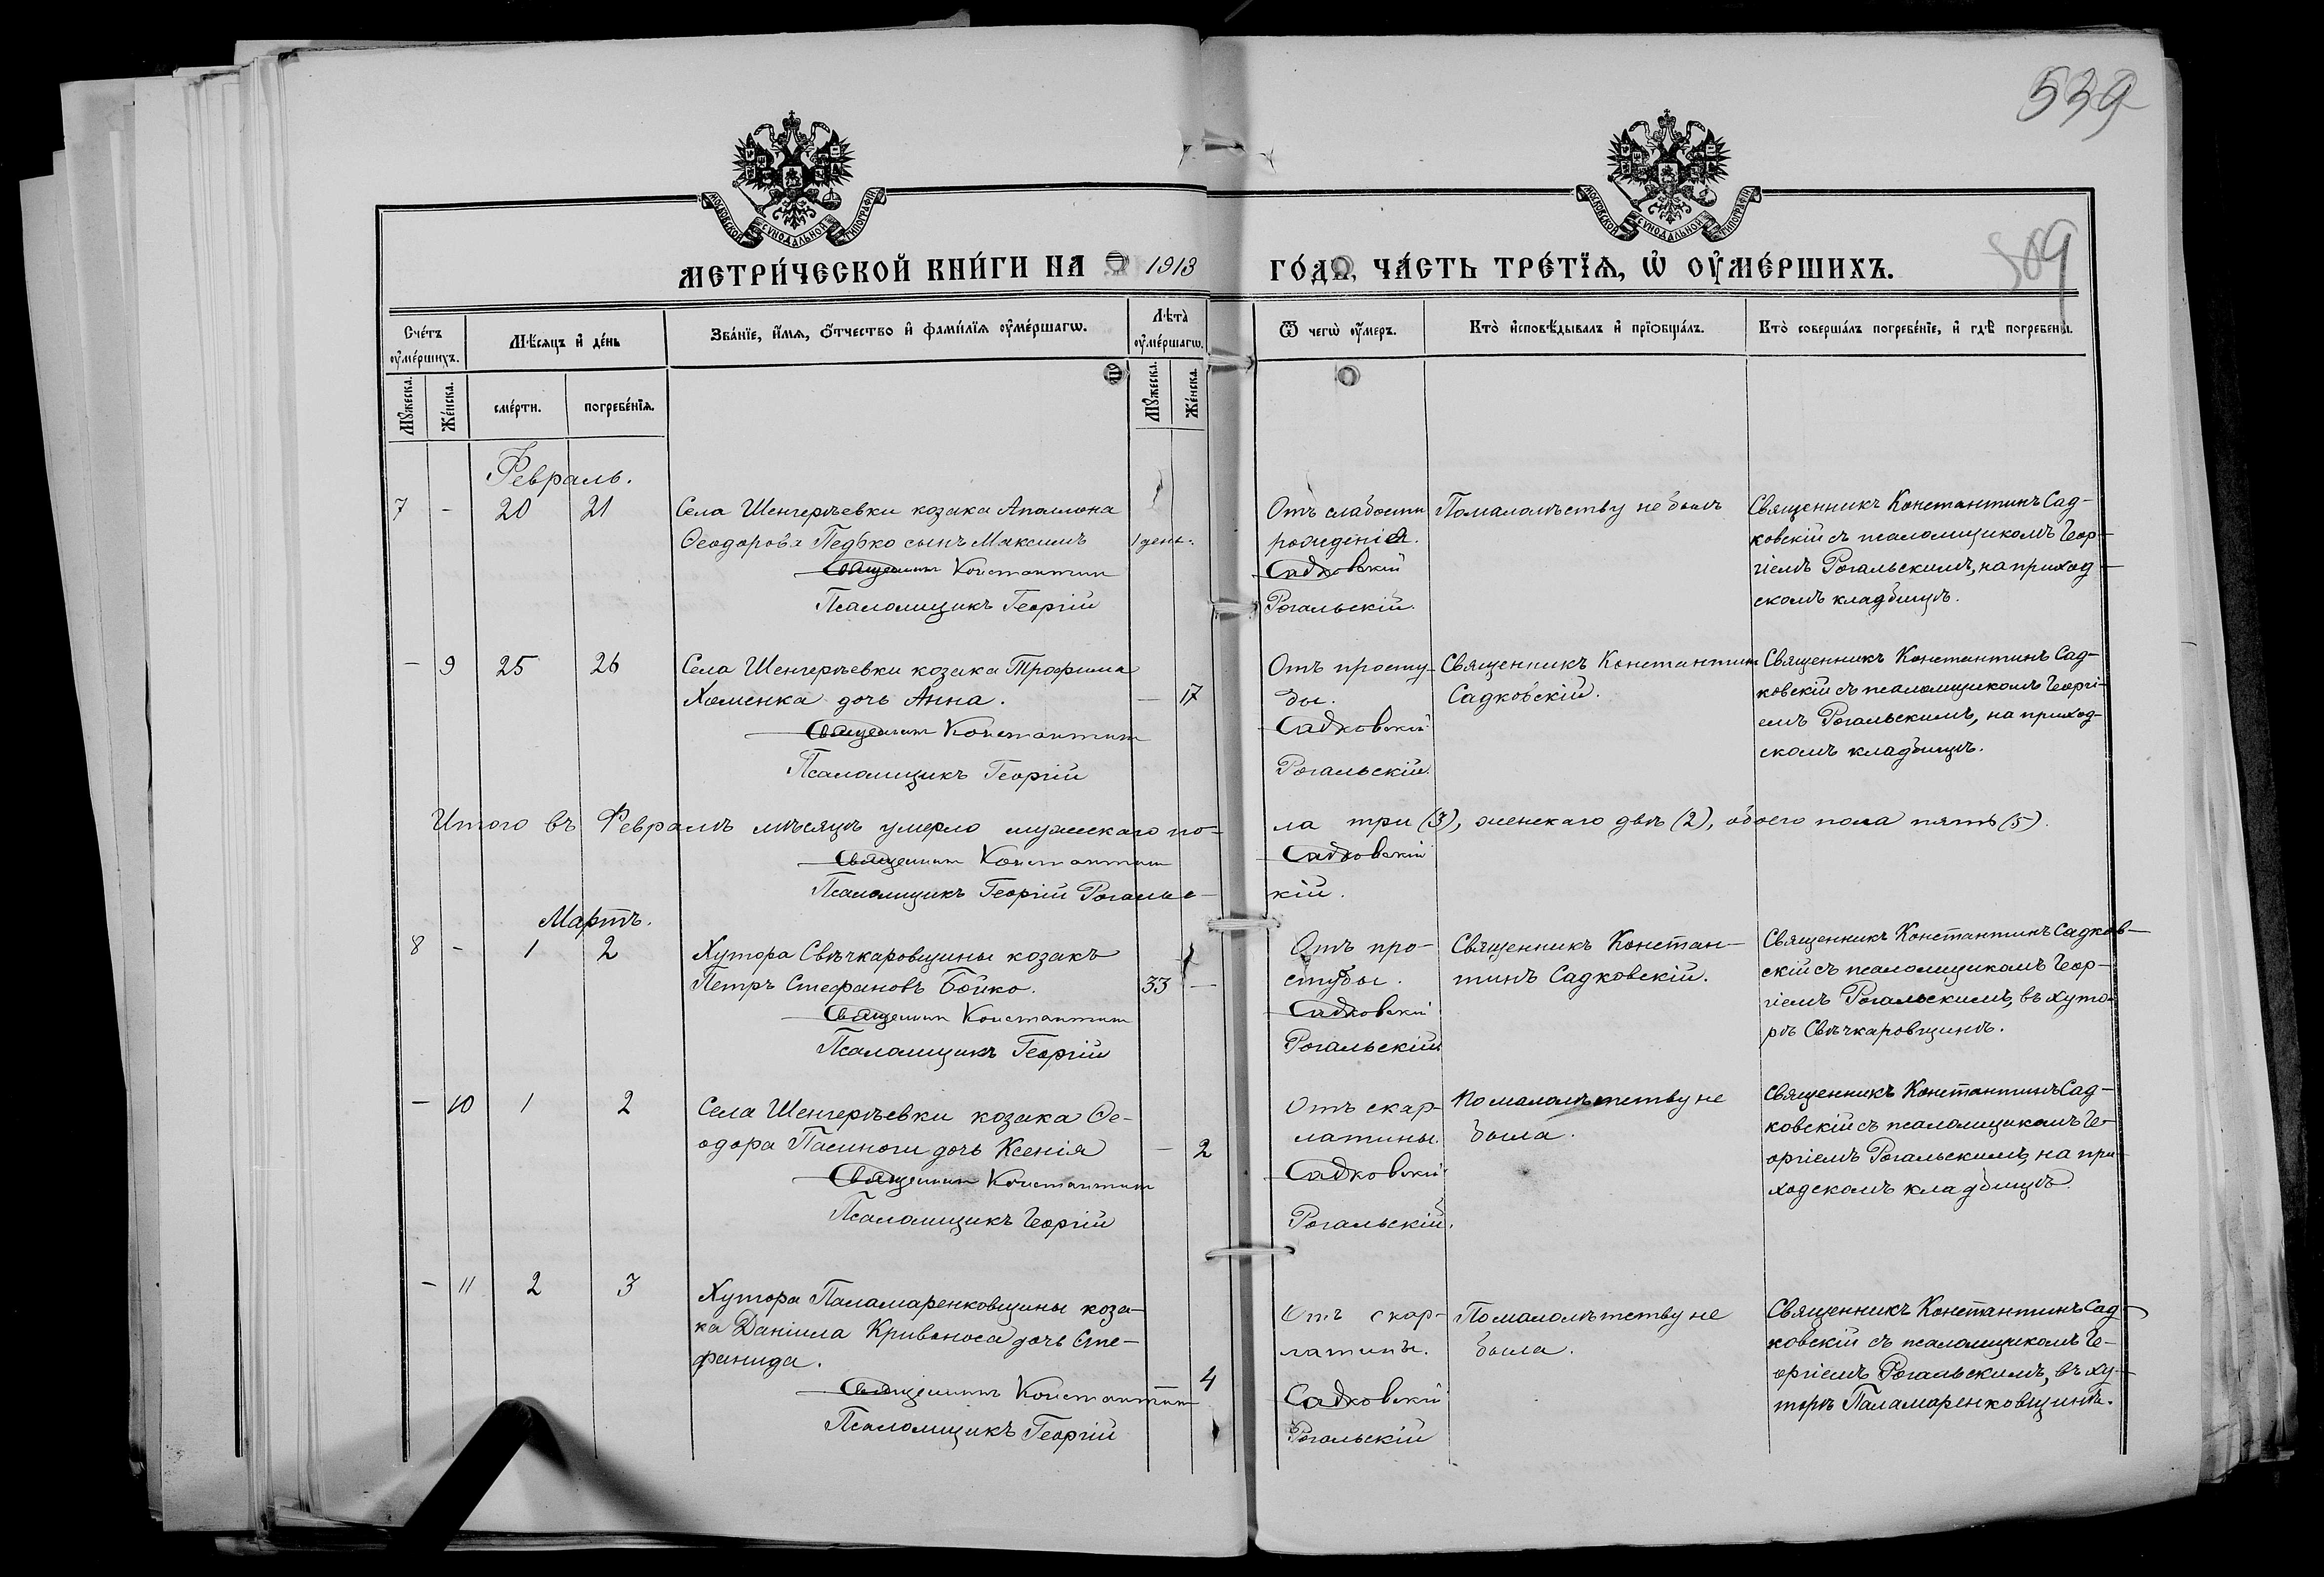 539
МОСКОВСКОЙ СУНОДАЛЬНОЙ ТИПОГРАФІИ
МОСКОВСКОЙ СУНОДАЛЬНОЙ ТИПОГРАФІИ
МЕТРИ́ЧЕСКОЙ КНИ́ГИ НА 1913 ГО́ДЪ, ЧА́СТЬ ТРЕ́ТІѦ, Ѡ ОУ҆МЕ́РШИХЪ.
509
Сче́тъ оу҆ме́ршихъ.
Мѣ́сяцъ и҆ де́нь
Зва́нїе, и҆́мѧ, ѻ҆́тчество и҆ фами́лїѧ оу҆ме́ршагѡ.
Лѣ́та оу҆ме́ршагѡ.
Ѿ чегѡ̀ оу҆́меръ.
Кто̀ и҆сповѣ́дывалъ и҆ прїѻбща́лъ.
Кто̀ соверша́лъ погребе́нїе, и҆ гдѣ̀ погребены̀.
Мꙋжеска.
Же́нска.
сме́рти.
погребе́нїѧ.
Мꙋжеска.
Же́нска.
Февраль.
7 - 20 21
Села Шенгерѣевки козака
Ѳеодорова Педько сынъ Максимъ
1 день.
Священникъ Константин
Псаломщикъ Георгій
Отъ слабости
рожденія.
Садковскій
Рогальскій.
По малолѣтству не былъ
Священникъ Константинъ Сад-
ковскій съ псаломщикомъ Геор-
гіемъ Рогальскимъ, на приход-
скомъ кладбищѣ.
— 9 25 26
Села Шенгерѣевки козака Трофима
Хоменка дочь Анна. — 17
Священникъ Константинъ
Псаломщикъ Георгій
Отъ просту-
ды.
Садковскій
Рогальскій.
Священникъ Константинъ
Садковскій.
Священникъ Константинъ Сад-
ковскій съ псаломщикомъ Георгі-
емъ Рогальскимъ, на приход-
скомъ кладбищѣ.
Итого въ Февралѣ мѣсяцѣ умерло мужескаго по-
ла три (3), женскаго двѣ (2), обоего пола пять (5).
Священникъ Константинъ Садковскій
Псаломщикъ Георгій Рогальс-
кій.
Мартъ.
8 - 1 2
Хутора Свѣчкаровщины козакъ
Петръ Стефановъ Бойко. 33 —
Священникъ Константинъ
Псаломщикъ Георгій
Отъ про-
студы.
Садковскій
Рогальскій
Священникъ Констан-
тинъ Садковскій.
Священникъ Константинъ Садков-
скій съ псаломщикомъ Геор-
гіемъ Рогальскимъ, въ хуто-
рѣ Свѣчкаровщинѣ.
— 10 1 2
Села Шенгерѣевки козака Ѳе-
одора Пасиноги дочь Ксенія — 2
Священникъ Константинъ
Псаломщикъ Георгій
Отъ скар-
латины.
Садковскій
Рогальскій.
По малолѣтству не
была.
Священникъ Константинъ Сад-
ковскій съ псаломщикомъ Ге-
оргіемъ Рогальскимъ, на при-
ходскомъ кладбищѣ.
— 11 2 3
Хутора Паламаренковщины коза-
ка Даніила Кривоноса дочь Сте-
фанида. — 4
Священникъ Константинъ
Псаломщикъ Георгій
Отъ скар-
латины.
Садковскій
Рогальскій
По малолѣтству не
была.
Священникъ Константинъ Сад-
ковскій съ псаломщикомъ Ге-
оргіемъ Рогальскимъ, въ ху-
торѣ Паламаренковщинѣ.